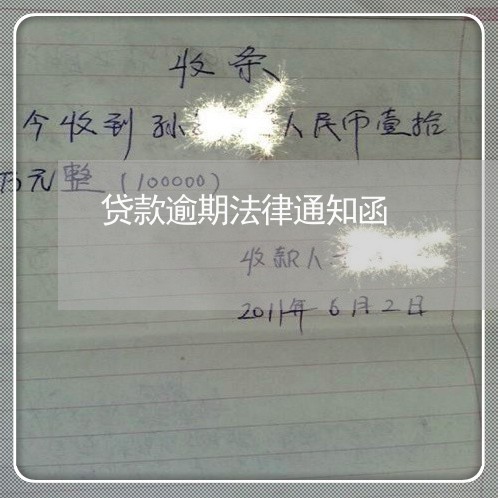 收条
今收到孙 人民币壹拾
万元整(100000)
贷款逾期法律通知函
收款人
2011年6月2日